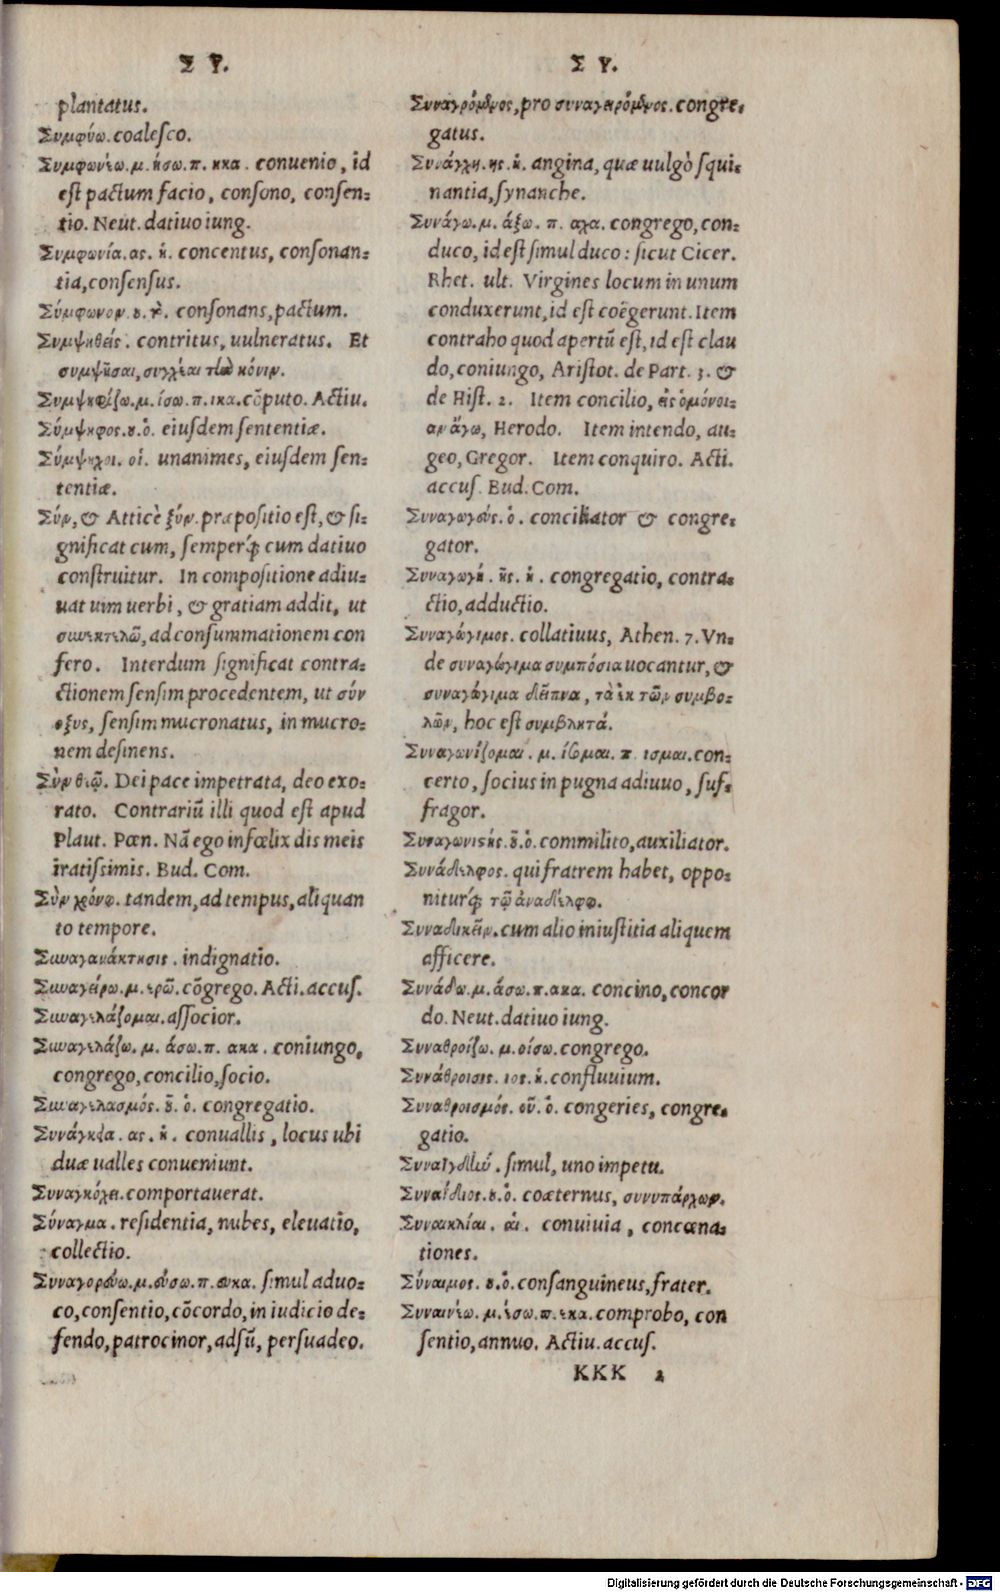 Σ Υ.
plantatus.
Συμφύω. coaleſco.
Συμφωνέω. μ. ήσω. π. ηκα. conuenio, id
eſt pactum facio, conſono, conſen-
tio. Neut. datiuo iung.
Συμφωνία. ας. ἡ. concentus, conſonan-
tia, conſenſus.
Σύμφωνον. ου. τὸ. conſonans, pactum.
Συμψηθείς. contritus, uulneratus. Et
συμψῆσαι, συγχέαι τὴν κόνιν.
Συμψηφίζω. μ. ίσω. π. ικα. cõputo. Actiu.
Σύμψηφος. ου. ὁ. eiuſdem ſententiæ.
Σύμψυχοι. οἱ. unanimes, eiuſdem ſen-
tentiæ.
Σύν, & Atticè ξύν. præpoſitio eſt, & ſi-
gnificat cum, ſemperq́; cum datiuo
conſtruitur. In compoſitione adiu-
uat uim uerbi, & gratiam addit, ut
συνεκτελῶ, ad conſummationem con
fero. Interdum ſignificat contra-
ctionem ſenſim procedentem, ut σύν
οξυς, ſenſim mucronatus, in mucro-
nem deſinens.
Σὺν θεῷ. Dei pace impetrata, deo exo-
rato. Contrariũ illi quod eſt apud
Plaut. Pœn. Nã ego infœlix dis meis
iratiſſimis. Bud. Com.
Σὺν χρόνῳ. tandem, ad tempus, aliquan
to tempore.
Συναγανάκτησις. indignatio.
Συναγείρω. μ. ερῶ. cõgrego. Acti. accuſ.
Συναγελάζομαι. aſſocior.
Συναγελάζω. μ. άσω. π. ακα. coniungo,
congrego, concilio, ſocio.
Συναγελασμός. οῦ. ὁ. congregatio.
Συνάγκεια. ας. ἡ. conuallis, locus ubi
duæ ualles conueniunt.
Συναγκόχει. comportauerat.
Σύναγμα. reſidentia, nubes, eleuatio,
collectio.
Συναγορεύω. μ. εύσω. π. ευκα. ſimul aduo-
co, conſentio, cõcordo, in iudicio de-
fendo, patrocinor, adſũ, perſuadeo.
Σ Υ.
Συναγρόμενος, pro συναγειρόμενος. congre-
gatus.
Συνάγχη. ης. ἡ. angina, quæ uulgò ſqui-
nantia, ſynanche.
Συνάγω. μ. άξω. π. αχα. congrego, con-
duco, id eſt ſimul duco: ſicut Cicer.
Rhet. ult. Virgines locum in unum
conduxerunt, id eſt coëgerunt. Item
contraho quod apertũ eſt, id eſt clau
do, coniungo, Ariſtot. de Part. 3. &
de Hiſt. 2. Item concilio, εἰς ὁμόνοι-
αν ἄγω, Herodo. Item intendo, au-
geo, Gregor. Item conquiro. Acti.
accuſ. Bud. Com.
Συναγωγεύς. ὁ. conciliator & congre-
gator.
Συναγωγή. ῆς. ἡ. congregatio, contra-
ctio, adductio.
Συναγώγιμος. collatiuus, Athen. 7. Vn-
de συναγώγιμα συμπόσια uocantur, &
συναγώγιμα δεῖπνα, τὰ ἐκ τῶν συμβο-
λῶν, hoc eſt συμβλητά.
Συναγωνίζομαι. μ. ίσομαι. π. ισμαι. con-
certo, ſocius in pugna adiuuo, ſuf-
fragor.
Συναγωνιστής. οῦ. ὁ. commilito, auxiliator.
Συνάδελφος. qui fratrem habet, oppo-
niturq́; τῷ ἀναδέλφῳ.
Συναδικεῖν. cum alio iniuſtitia aliquem
afficere.
Συνάδω. μ. άσω. π. ακα. concino, concor
do. Neut. datiuo iung.
Συναθροίζω. μ. οίσω. congrego.
Συνάθροισις. ιος. ἡ. confluuium.
Συναθροισμός. οῦ. ὁ. congeries, congre-
gatio.
Συναΐγδην. ſimul, uno impetu.
Συναΐδιος. ου. ὁ. coæternus, συνυπάρχων.
Συναικλίαι. αἱ. conuiuia, concœna-
tiones.
Σύναιμος. ου. ὁ. conſanguineus, frater.
Συναινέω. μ. έσω. π. εκα. comprobo, con
ſentio, annuo. Actiu. accuſ.
KKK 2
Digitalisierung gefördert durch die Deutsche Forschungsgemeinschaft - DFG